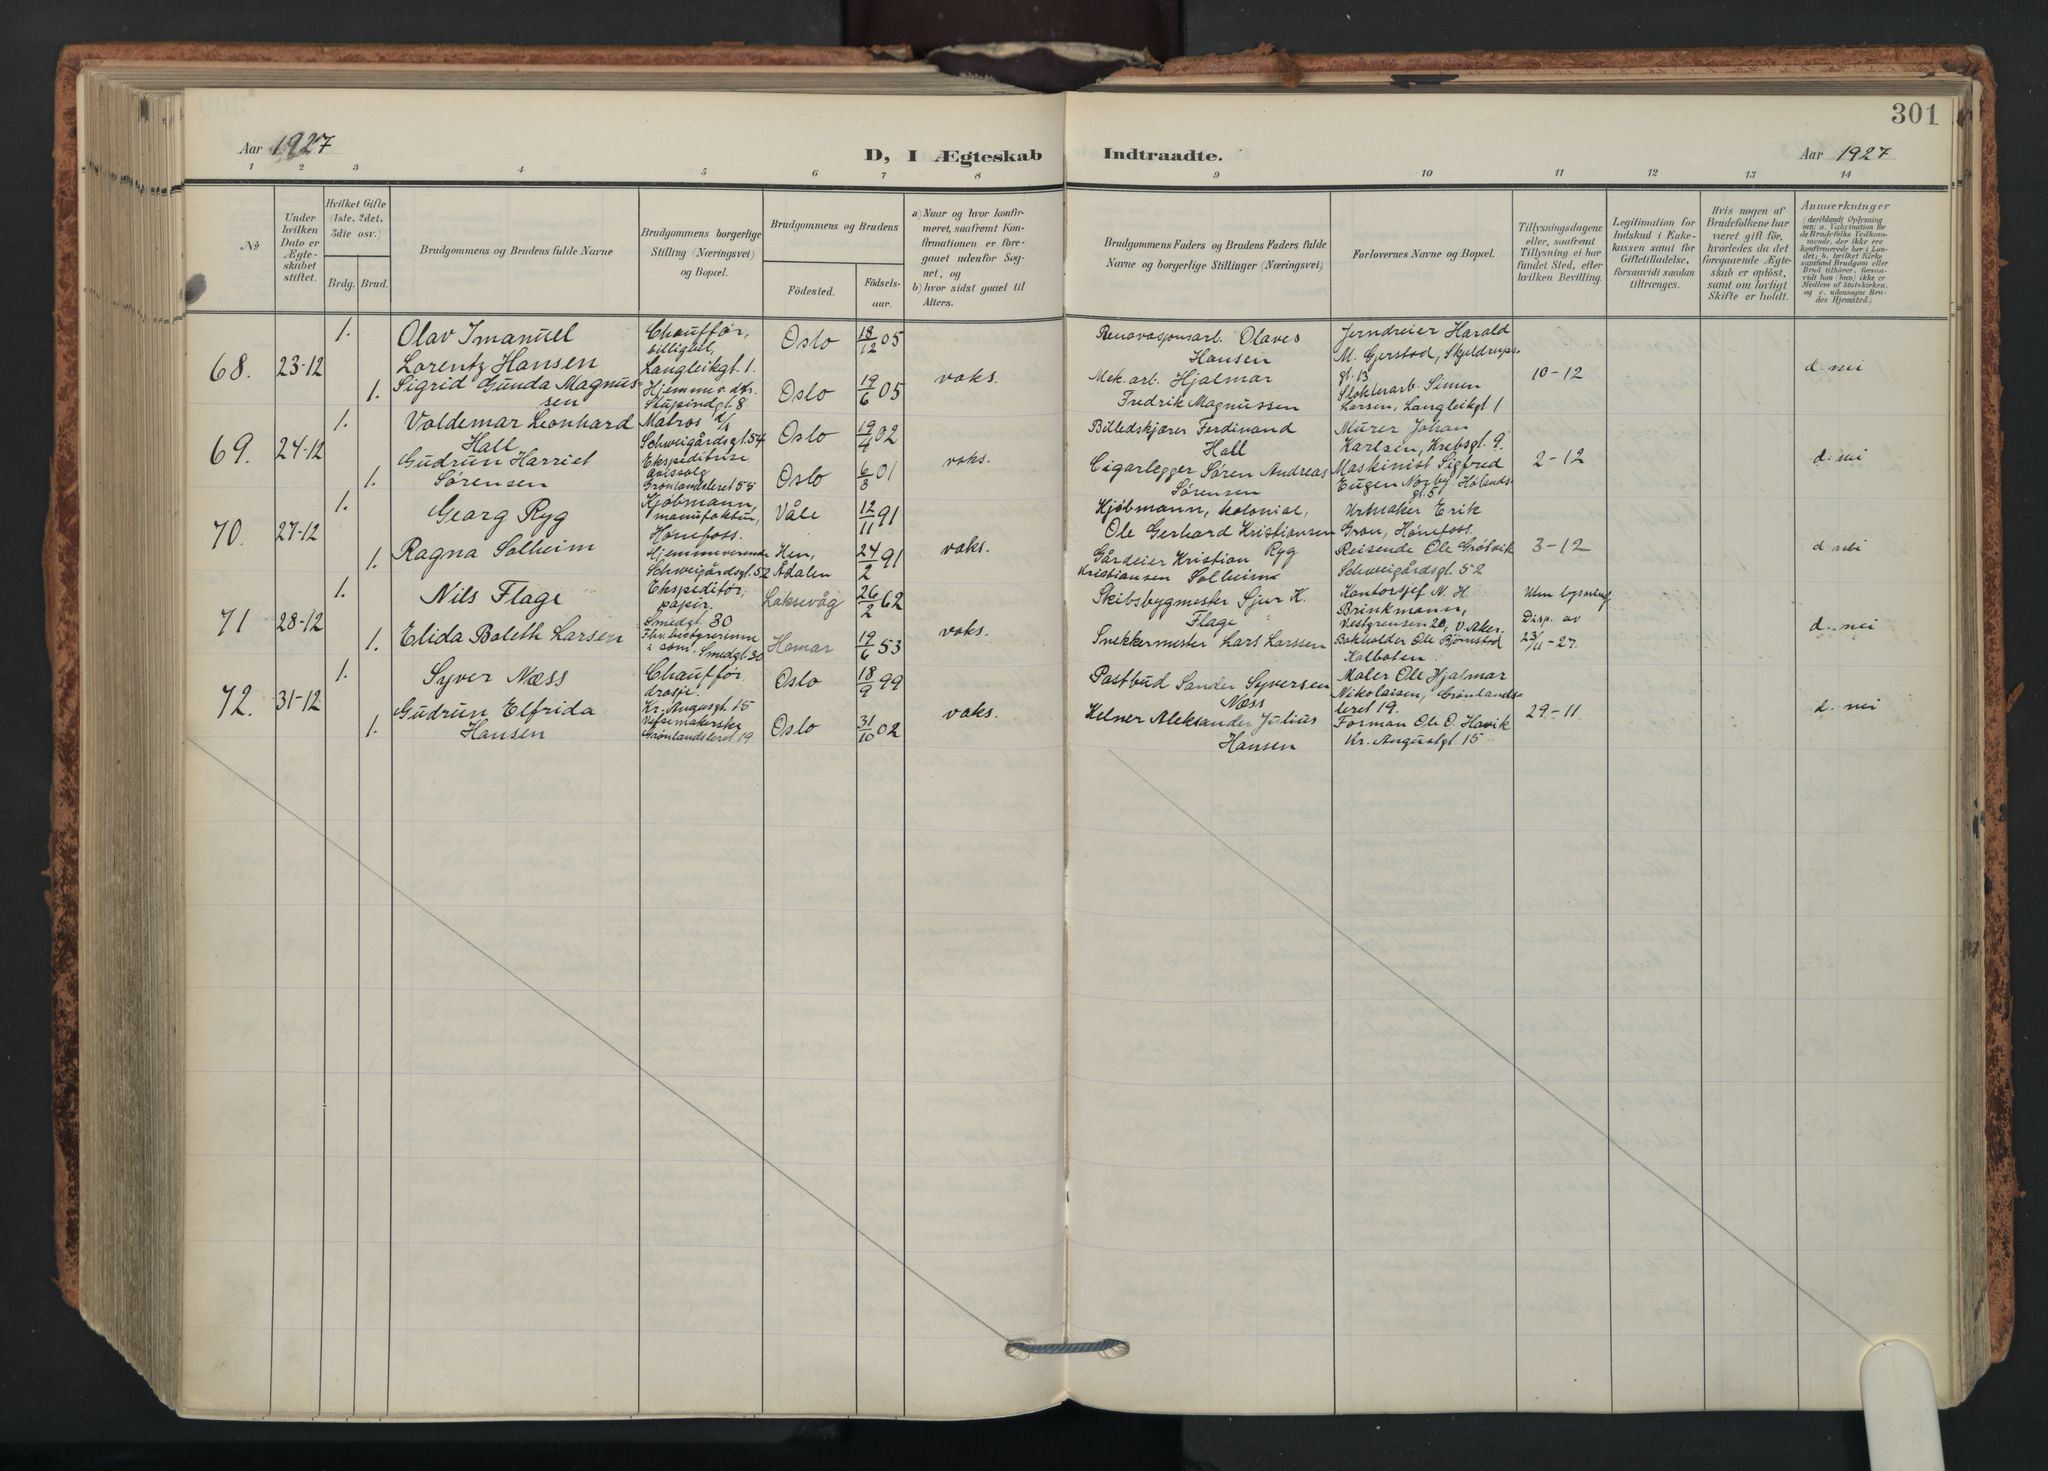 301
Aar 1927
D, I Ægteskab
Indtraadte.
Aar 1927
1 2 3 4 5 6 7 8 9 10 11 12 13 14
№
Under hvilken Dato er Ægteskabet stiftet.
Hvilket Gifte (1ste, 2det, 3die osv.)
Brdg. Brud.
Brudgommens og Brudens fulde Navne
Brudgommens borgerlige Stilling (Næringsvei) og Bopæl.
Brudgommens og Brudens
Fødested.
Fødsels-aar.
a) Naar og hvor konfirmeret, saafremt Konfirmationen er foregaaet udenfor Sognet, og
b) hvor sidst gaaet til Alters.
Brudgommens Faders og Brudens Faders fulde Navne og borgerlige Stillinger (Næringsvei)
Forlovernes Navne og Bopæl.
Tillysningsdagene eller, saafremt Tillysning ei har fundet Sted, efter hvilken Bevilling.
Legitimation for Indskud i Enkekassen samt for Giftetilladelse, forsaavidt saadan tiltrænges.
Hvis nogen af Brudefolkene har været gift før, hvorledes da det foregaaende Ægteskab er opløst, samt om lovligt Skifte er holdt.
Anmærkninger
(deriblandt Oplysning om: a. Vakcination for de Brudefolks Vedkommende, der ikke ere konfirmerede her i Landet; b. hvilket Kirkesamfund Brudgom eller Brud tilhører, forsaavidt han (hun) ikke er Medlem af Statskirken, og c. udensogns Brudes Hjemsted.)
68. 23-12
1. Olav Imanuel
Lorentz Hansen
Chauffør,
billighet,
Langleikgt. 1.
Oslo 18/12 05
1. Sigrid Gunda Magnus-
sen
Hjemme
Stupindgt. 8
Oslo 19/6 05
voks.
Renovasjonsarb. Olaves
Hansen
Mek. arb. Hjalmar
Fredrik Magnussen
Jerndreier Harald
M. Gjerstad, Skjeldrups-
gt. 13
Slakterarb. Simen
Larsen, Langleikgt 1
10-12
d. nei
69. 24-12
1. Valdemar Leonhard
Hall
Matros d/s
Schweigårdsgt. 54
Oslo 19/4 02
1. Gudrun Harriet
Sørensen
Ekspeditrise
avissalg
Grønlandsleret 55
Oslo 6/3 01
voks.
Billedskjærer Ferdinand
Hall
Cigarlegger Søren Andreas
Sørensen
Murer Johan
Karlsen, Krebsgt. 9.
Maskinist Sigfred
Eugen Norby, Hølands-
gt. 5
2-12
d. nei
70. 27-12
1. Georg Ryg
Kjøbmann,
manufaktur,
Hønefoss.
Våle 12/11 91
1. Ragna Solheim
Hjemmeværende
Schweigårdsgt. 52
Hen,
Ådalen
24/2 91
voks.
Kjøbmann, kolonial,
Ole Gerhard Kristiansen
Ryg
Gårdeier Kristian
Kristiansen Solheim
Urmaker Erik
Gran, Hønefoss.
Reisende Ole Grøtvik
Schweigårdsgt. 52
3-12
d. nei
71 28-12
1. Nils Flage
Ekspeditør,
papir,
Smedgt. 30
Laksevåg 26/2 62
1. Elida Boleth Larsen
Fhv. bestyrerinne
Smedgt. 30
Hamar 19/6 53
voks.
Skibsbygmester Sjur K.
Flage
Snekkermester Lars Larssen
Kontorsjef N. H.
Brinkmann,
Vestgrensen 20, V. Aker.
Bokholder Ole Bjørnstad
Kolbotn.
Uten lysning
Disp. av
23/11-27.
d. nei
72. 31-12
1. Syver Næss
Chauffør,
drosje,
Kr. Augustgt. 15
Oslo 18/9 99
1. Gudrun Elfrida
Hansen
Vestmakerske
Grønlandsleret 19
Oslo 31/10 02
voks.
Postbud Sander Syversen
Næss
Kelner Aleksander Julius
Hansen
Maler Ole Hjalmar
Nikolaisen, Grønlands-
leret 19.
Formann Ole O. Havik
Kr. Augustgt 15
29-11.
d. nei